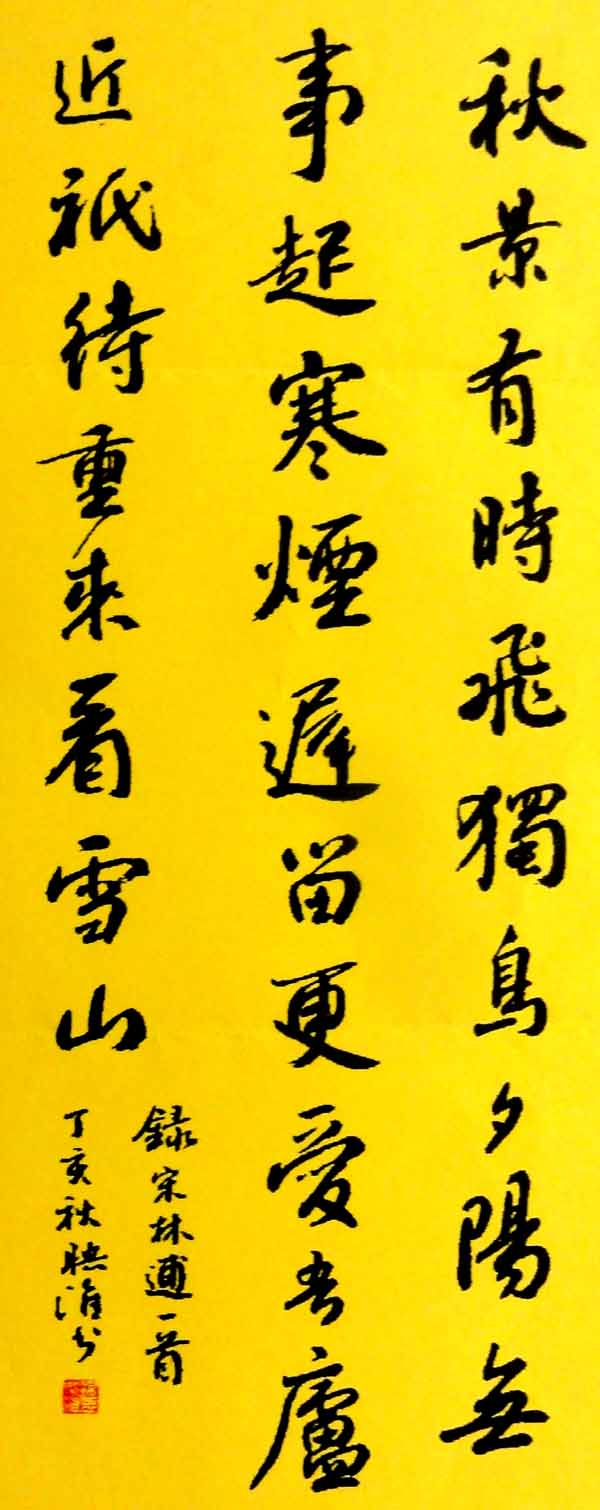 秋景有時飛獨鳥夕陽無
事起寒煙遲留更愛吾廬
近祇待重來看雪山
録宋林逋一首
丁亥秋